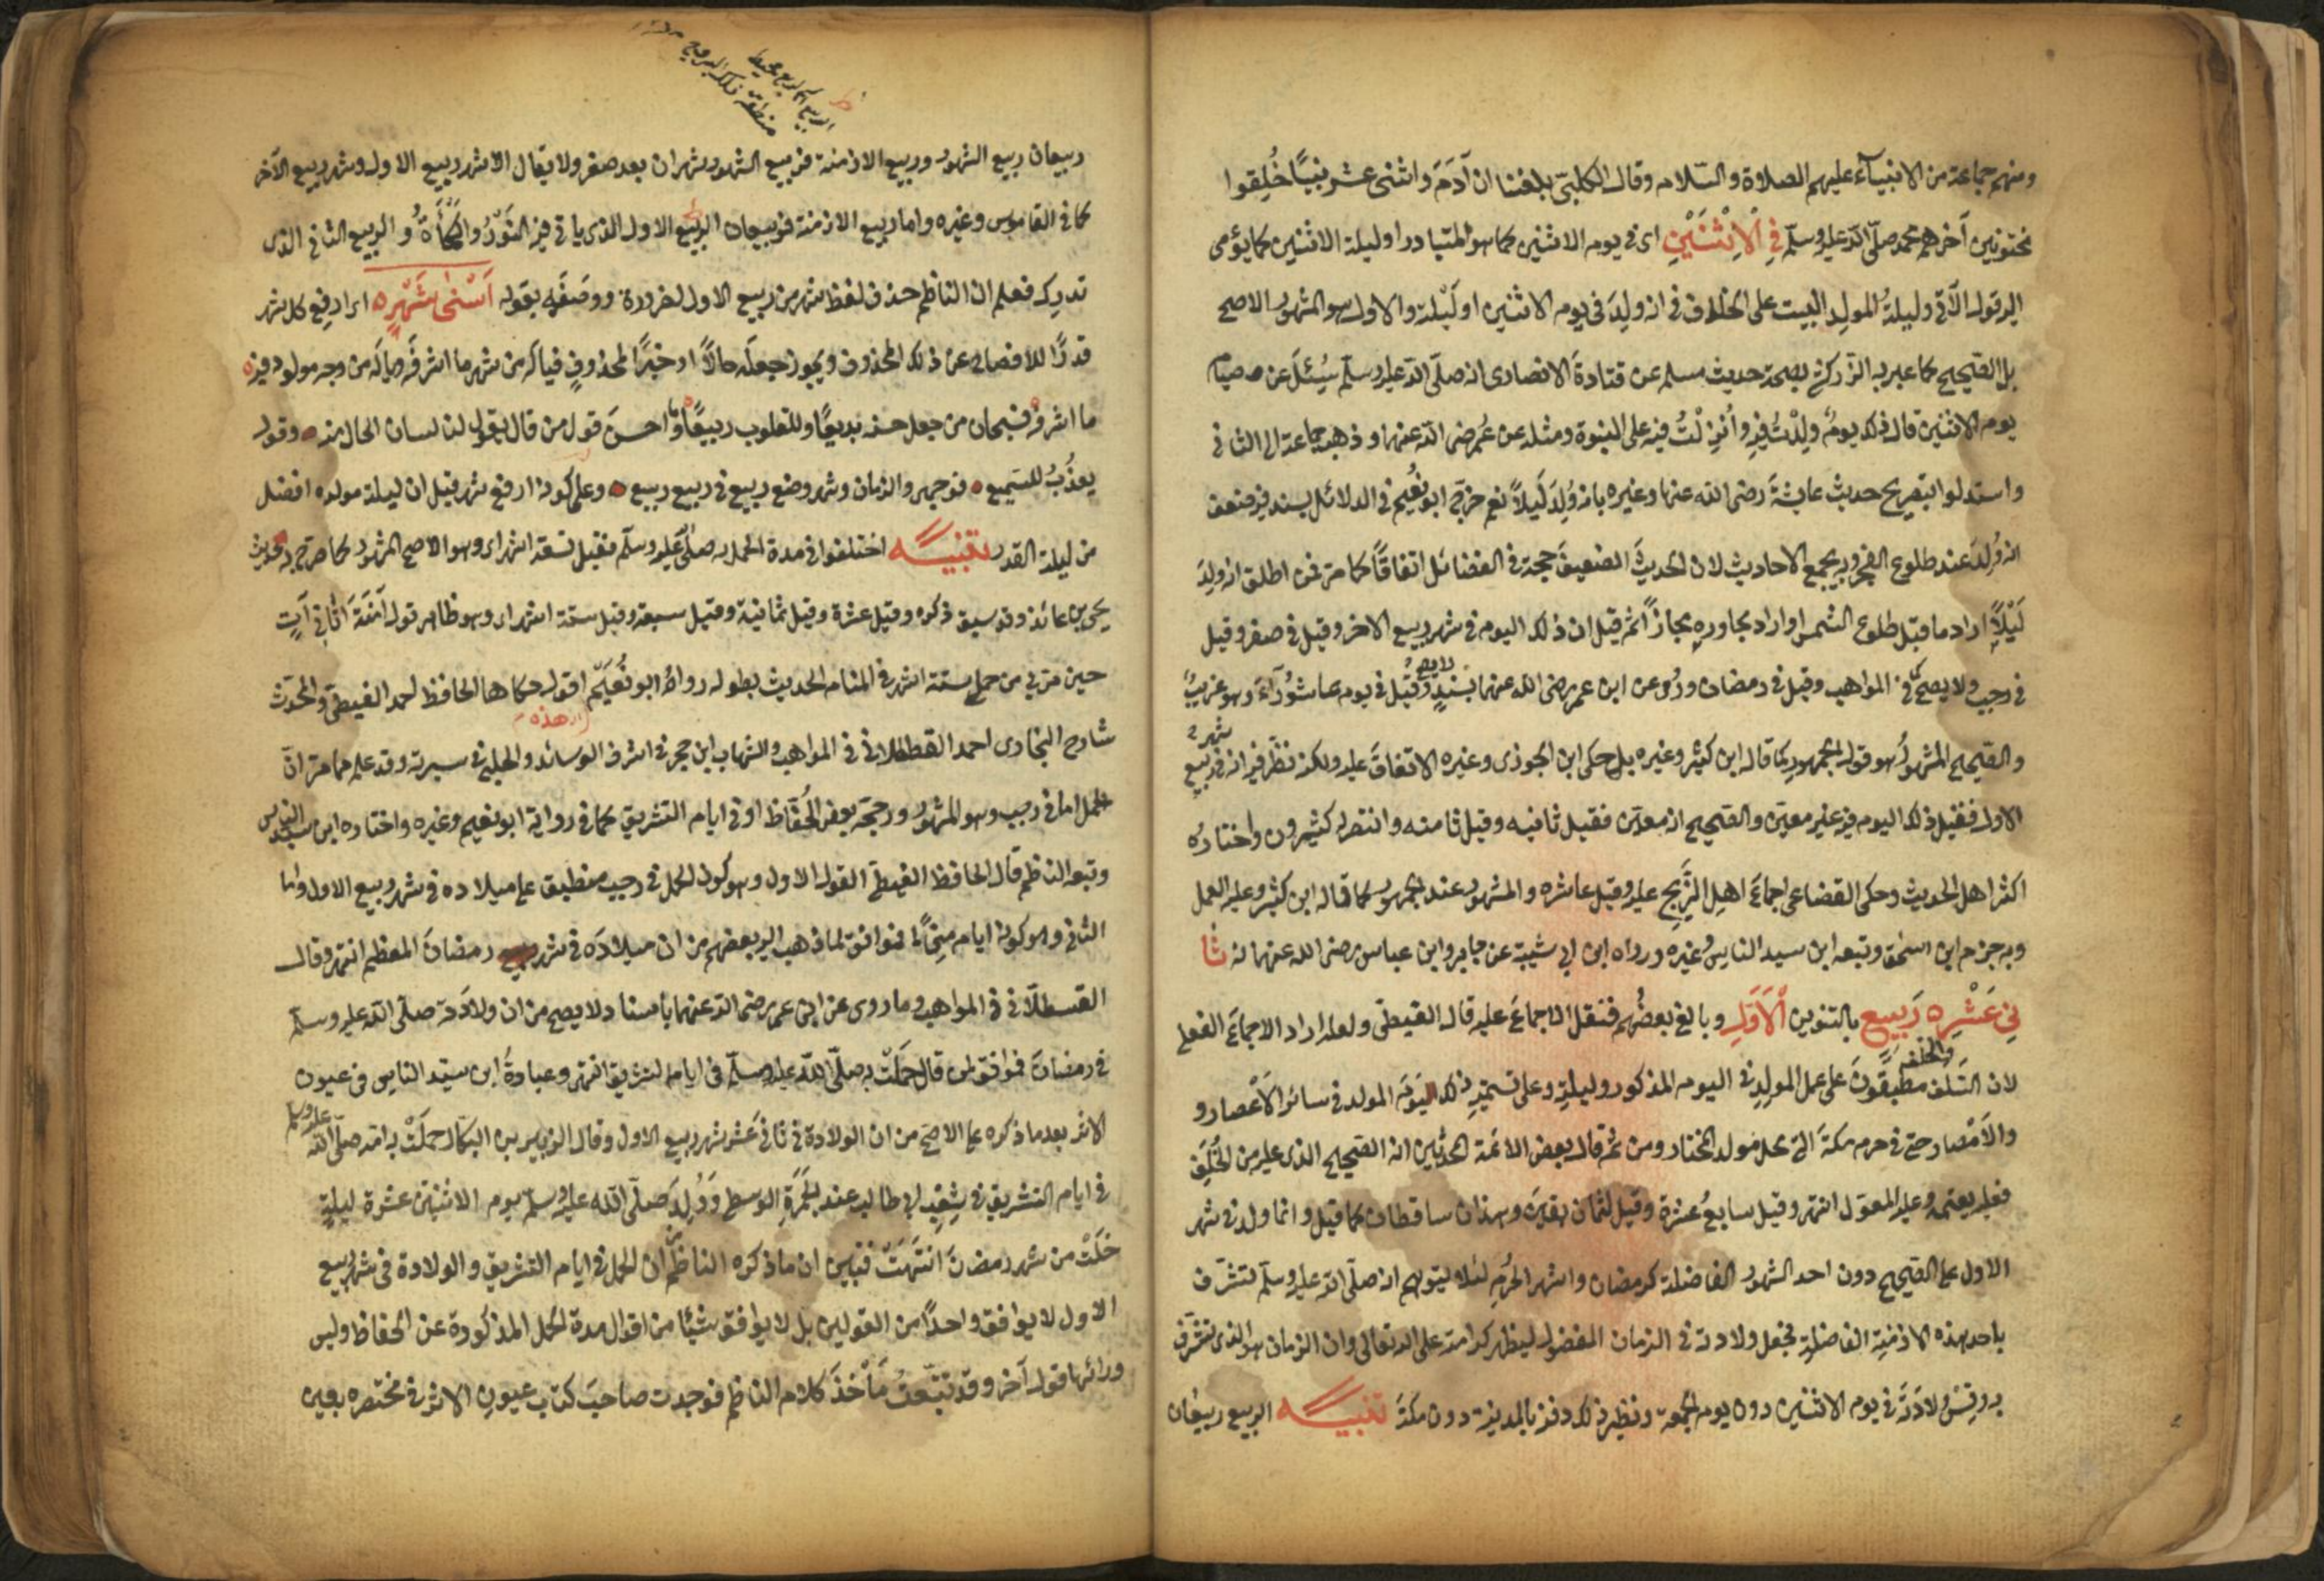 ومنهم جماعة من الانبيآء عليهم الصلاة والسّلام وقال الكلبىّ بلغنا ان آدَمَ واثنى عشر نبيًّا خُلِقوا
مختونين آخرهم محمد صلّى الله عليه وسلّم فِي الْاِثْنَيْنِ اى فى يوم الاثنين كما هو المتبادر او ليلة الاثنين كما يؤمى
اليه قوله الآتى وليلةُ المولد البيت على الخلاف فى انه وُلِدَ فى يوم الاثنين او لَيْلته والاول هو المشهور الاصح
بل الصّحيح كما عبر به الزركشى لصحة حديث مسلم عن قتادةَ الانصارى انه صلّى الله عليه وسلّم سُئِلَ عن صيام
يوم الاثنين قال ذلك يومٌ وُلِدْتُ فيه واُنْزِلَتْ فيه علىّ النبوة ومثله عن عُمر رضى الله عنه وذهب جماعة الى الثانى
واستدلوا بتصريح حديث عايشةَ رضى الله عنها وغيره بانه وُلِدَ لَيلاً نعم خرّج ابو نُعيم فى الدلائل بسند فيه ضعف
انه وُلِدَ عند طلوع الفجر وبه يجمع الاحاديث لان الحديثَ الضعيفَ حجة فى الفضائل اتفاقًا كما مر فمن اطلق انه وُلِدَ
لَيْلاً اراد ما قبل طلوع الشمس او اراد مجاوره مجازاً ثم قيل ان ذلك اليوم فى شهر ربيع الاخر وقيل فى صفر وقيل
فى رجب ولا يصحّ كما فى المواهب وقيل فى رمضان وروى عن ابن عمر رضى الله عنهما بسندٍ لا يصح وقيل فى يوم عاشُورآءَ وهو غريبٌ
والصّحيح المشهورُ هو قول الجمهور كما قاله ابن كثير وغيره بل حكى ابن الجوزى وغيره الاتفاقَ عليه ولكنه نظّر فيه انه فى شهر ربيع
الاول فقيل ذلك اليوم فيه غير معيّن والصحيح انه معيّن فقيل ثانيه وقيل ثامنه وانتصر له كثيرون واختارهُ
اكثر اهل الحديث وحكى القضاعى اجماعَ اهلِ الزِّيجِ عليه وقيل عاشره والمشهور عند الجمهور كما قاله ابن كثير وعليه العمل
وبه جزم ابن اسحٰق وتبعه ابن سيد الناس وغيره ورواه ابن ابى شيبة عن جابر وابن عباس رضى الله عنهم انه ثَا
نِي عَشْرِه رَبِيعٍ بالتنوين الْاَوَّلِ وبالغ بعضُهم فنقل الاجماعَ عليه قال الغيطى ولعله اراد الاجماعَ الفعلى
لان السّلف والخلف مطبقونَ على عمل المولدِ فى اليوم المذكور وليلته وعلى تسميته ذلك اليَومَ المولد فى سائر الاَعْصار و
والاَمْصار حتى فى حرم مكةَ التى محل مولد المختار ومن ثم قال بعض الائمة المحدثين انه الصحيح الذى عليه من الخَلَف
فعليه يعتمد وعليه المعوّل انتهى وقيل سابعُ عشرة وقيل لثمان بقين وهذان ساقطان كما قيل وانما ولد فى شهر
الاول على الصّحيح دون احد الشهور الفاضلة كرمضان واشهر الحُرُمِ لئلا يتوهم انه صلّى الله عليه وسلّم تشرّف
باحد هذه الازمنة الفاضلةِ فجعل ولادته فى الزمان المفضول ليظهر كرامته على الله تعالى وان الزمان هو الذى تشرّفَ
به وقس ولادَتَه فى يوم الاثنين دون يوم الجمعة ونظير ذلك دفنه بالمدينة دون مكةَ تنبيـه الربيع ربيعان
الربيع
منطقة فلك البروج
ربيعان ربيع الشهور وربيع الازمنة فربيع الشهور شهران بعد صفر ولا يقال الا شهر ربيع الاول وشهر ربيع الآخر
كما فى القاموس وغيره واما ربيع الازمنة فربيعان الربيع الاول الذى ياتى فيه النَّوْرُ والكَمْأَةُ والربيع الثانى الذى
تدرك فعلم ان الناظم حذف لفظ شهر من ربيع الاول لضرورة ووَصَفَه بقوله اَسْنٰى شَهْرِه اى ارفع كل شهر
قدرًا للافصاح عن ذلك المحذوف ويجوز جعله حالاً او خبرًا لمحذوفٍ فيا لَه من شهر ما اشرفَه ويا لَه من وجه مولود فيه
ما اشرفه فسبحان من جعل حسنه بديعًا وللقلوب ربيعًا وما احسنَ قول من قال يقول لنا لسان الحال منه وقول
يعذُبُ للسّميع فوجهى والزمان وشهر وضعى ربيع فى ربيع ربيع وعلم كونه ارفع شهر قيل ان ليلة مولده افضل
من ليلة القدر تنبيـه اختلفوا فى مدة الحمل به صلّى الله عليه وسلّم فقيل تسعة اشهر وهو الاصح المشهور كما صرح به حديث
يحيى بن عائذ وقد سبق ذكره وقيل عشرة وقيل ثمانية وقيل سبعة وقيل ستة اشهر وهو ظاهر قول آمنَةَ اَتانى آتٍ
حين مرّ بى من حملى ستة اشهر فى المنام الحديث بطوله رواهُ ابو نُعَيمٍ اقول حكاها الحافظ احمد الغيطى والمحدّث
هذه
شارح البخارى احمد القسطلانى فى المواهب والشهاب ابن حجر فى اشرف الوسائل والحلبى فى سيرته وقد علم مما مر انّ
الحمل اما فى رجب وهو المشهور ورجحه بعض الحُفّاظ او فى ايام التشريق كما فى رواية ابو نعيم وغيره واختاره ابن سيد الناس
وتبعه الناظم قال الحافظ الغيطى القول الاول وهو كون الحمل فى رجب منطبق على ميلاده فى شهر ربيع الاول واما
الثانى وهو كونه ايام مِنًى فموافق لما ذهب اليه بعضهم من ان ميلادَه فى شهر رمضانَ المعظم انتهى وقال
القسطلّانى فى المواهب وما روى عن ابن عمر رضى الله عنهما باسناد لا يصح من ان ولادَته صلّى الله عليه وسلّم
فى رمضانَ فموافق لمن قال حَمَلَتْ به صلّى الله عليه وسلّم فى ايام التشريق انتهى وعبارةُ ابن سيّد الناس فى عيون
الاثر بعد ما ذكره على الاصح من ان الولادة فى ثانى عَشر شهر ربيع الاول وقال الزبير بن البكار حمَلَتْ به امّه صلّى الله عليه وسلم
فى ايام التشريق فى شِعْبِ ابى طالب عند الجَمْرَةِ الوسطى وَوُلِدَ صلّى الله عليه وسلم يوم الاثنين عشرة ليلةٍ
خلَتْ من شهر رمضانَ انتَهَتْ فتبين ان ما ذكره الناظم من ان الحمل فى ايام التشريق والولادة فى شهر ربيع
الاول لا يوافق واحدًا من القولين بل لا يوافق شيئًا من اقوال مدة الحمل المذكورة عن الحفاظ وليس
ورائها قول آخر وقد تتبّعتُ مَأخَذَ كلام الناظم فوجدت صاحبَ كتاب عيون الاثر فى مختصره بعين